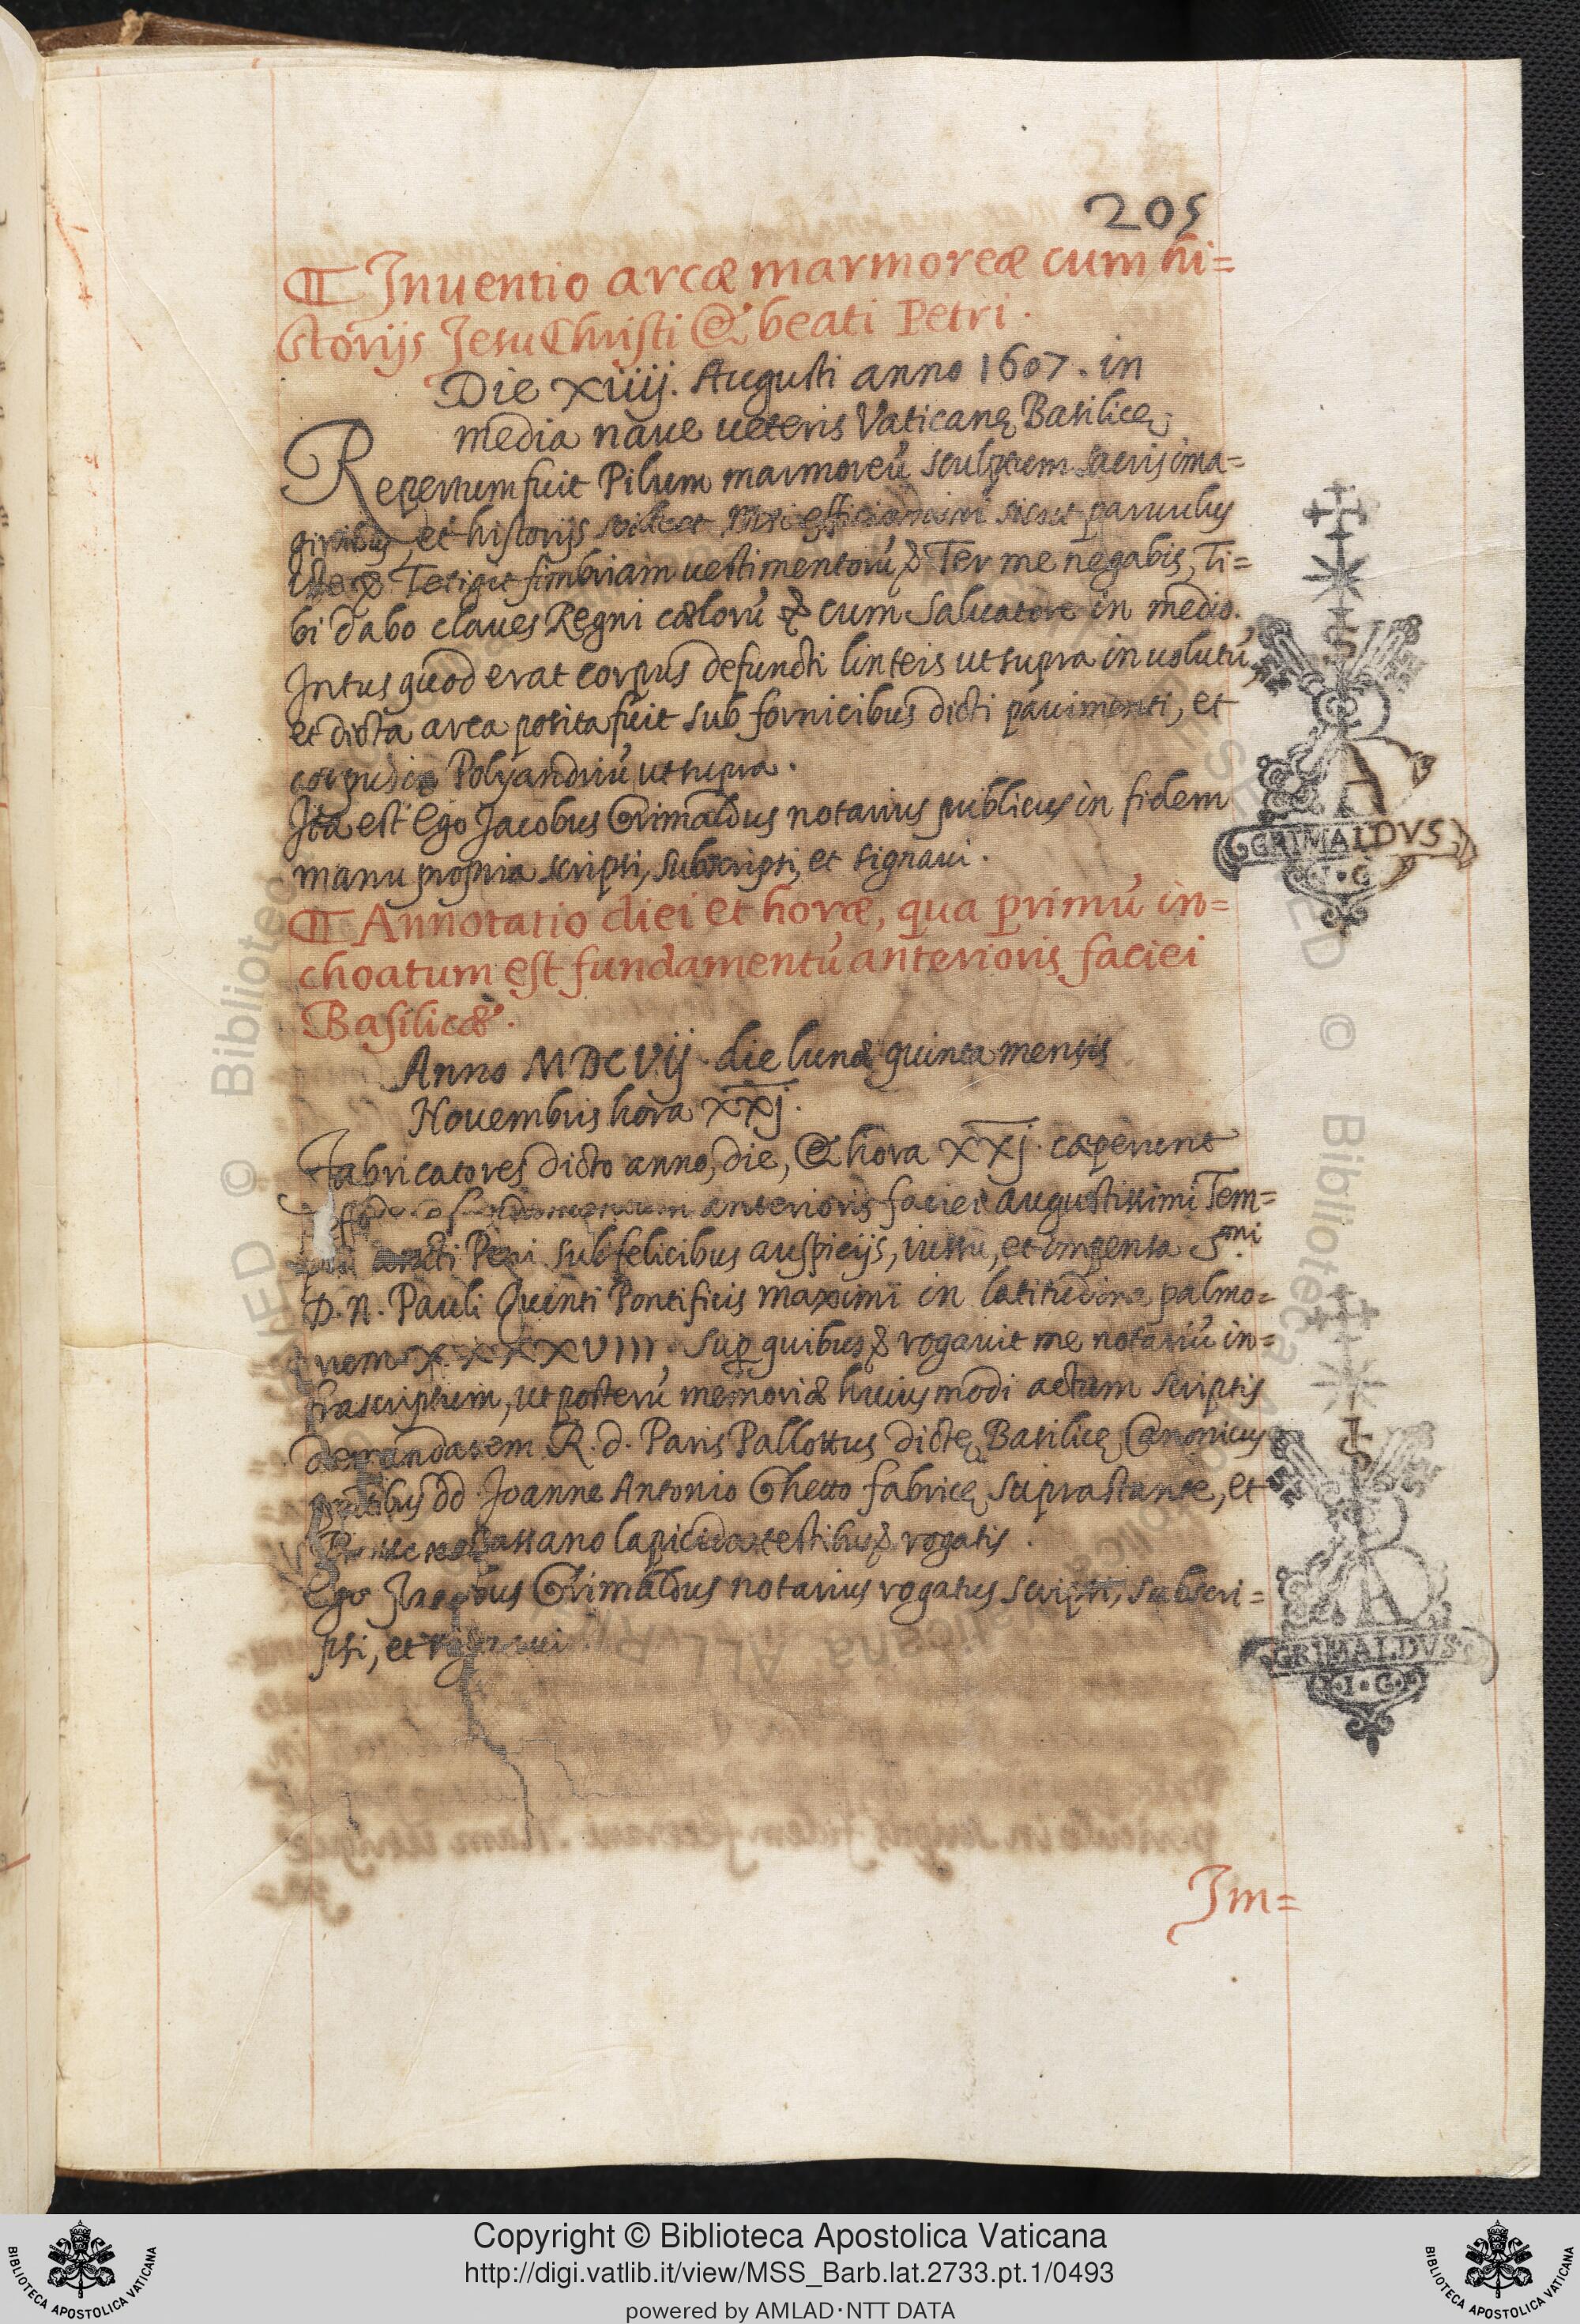 205
¶ Inuentio arcæ marmoreæ cum hi=
storijs Jesu Christi & beati Petri.
Die xiiij. Augusti anno 1607. in
media naue ueteris Vaticanę Basilicę
Repertum fuit Pilum marmoreū sculptum sacris ima=
ginibus, et historijs scilicet Nisi efficiamini sicut paruulus
iste & Tetigit fimbriam uestimentorū & Ter me negabis, Ti=
bi dabo claues Regni cælorū & cum Saluatore in medio.
Intus quod erat corpus defuncti linteis ut supra inuolutū,
et dicta arca posita fuit sub fornicibus dicti pauimenti, et
Polyandriū ut supra.
Ita est Ego Jacobus Grimaldus notarius publicus in fidem
manu propria scripsi, subscripsi, et signaui.
¶ Annotatio diei et horæ, qua primū in=
choatum est fundamentū anterioris faciei
Basilicæ.
Anno MDCVij. die lunæ quinta mensis
Nouembris hora xxj.
Fabricatores dicto anno, die, & hora xxj. cæperunt
anterioris faciei augustissimi Tem=
sub felicibus auspicijs, iussu, et impensa S.mi
D. N. Pauli Quinti Pontificis maximi in latitudine palmo=
rum XXXXVIII. Sup quibus & rogauit me notariū in=
frascriptum, ut posterū memoriæ huiusmodi actum scriptis
demandarem R. d. Paris Pallottus dictę Basilicę Canonicus
dd Joanne Antonio Ghetto fabricę suprastante, et
Bassano lapicida testibus & rogatis.
Ego Jacobus Grimaldus notarius rogatus scripsi, subscri=
psi, et
Im=
GRIMALDVS
I·G
GRIMALDVS
I·G·
Copyright © Biblioteca Apostolica Vaticana
http://digi.vatlib.it/view/MSS_Barb.lat.2733.pt.1/0493
powered by AMLAD·NTT DATA
BIBLIOTECA APOSTOLICA VATICANA
BIBLIOTECA APOSTOLICA VATICANA